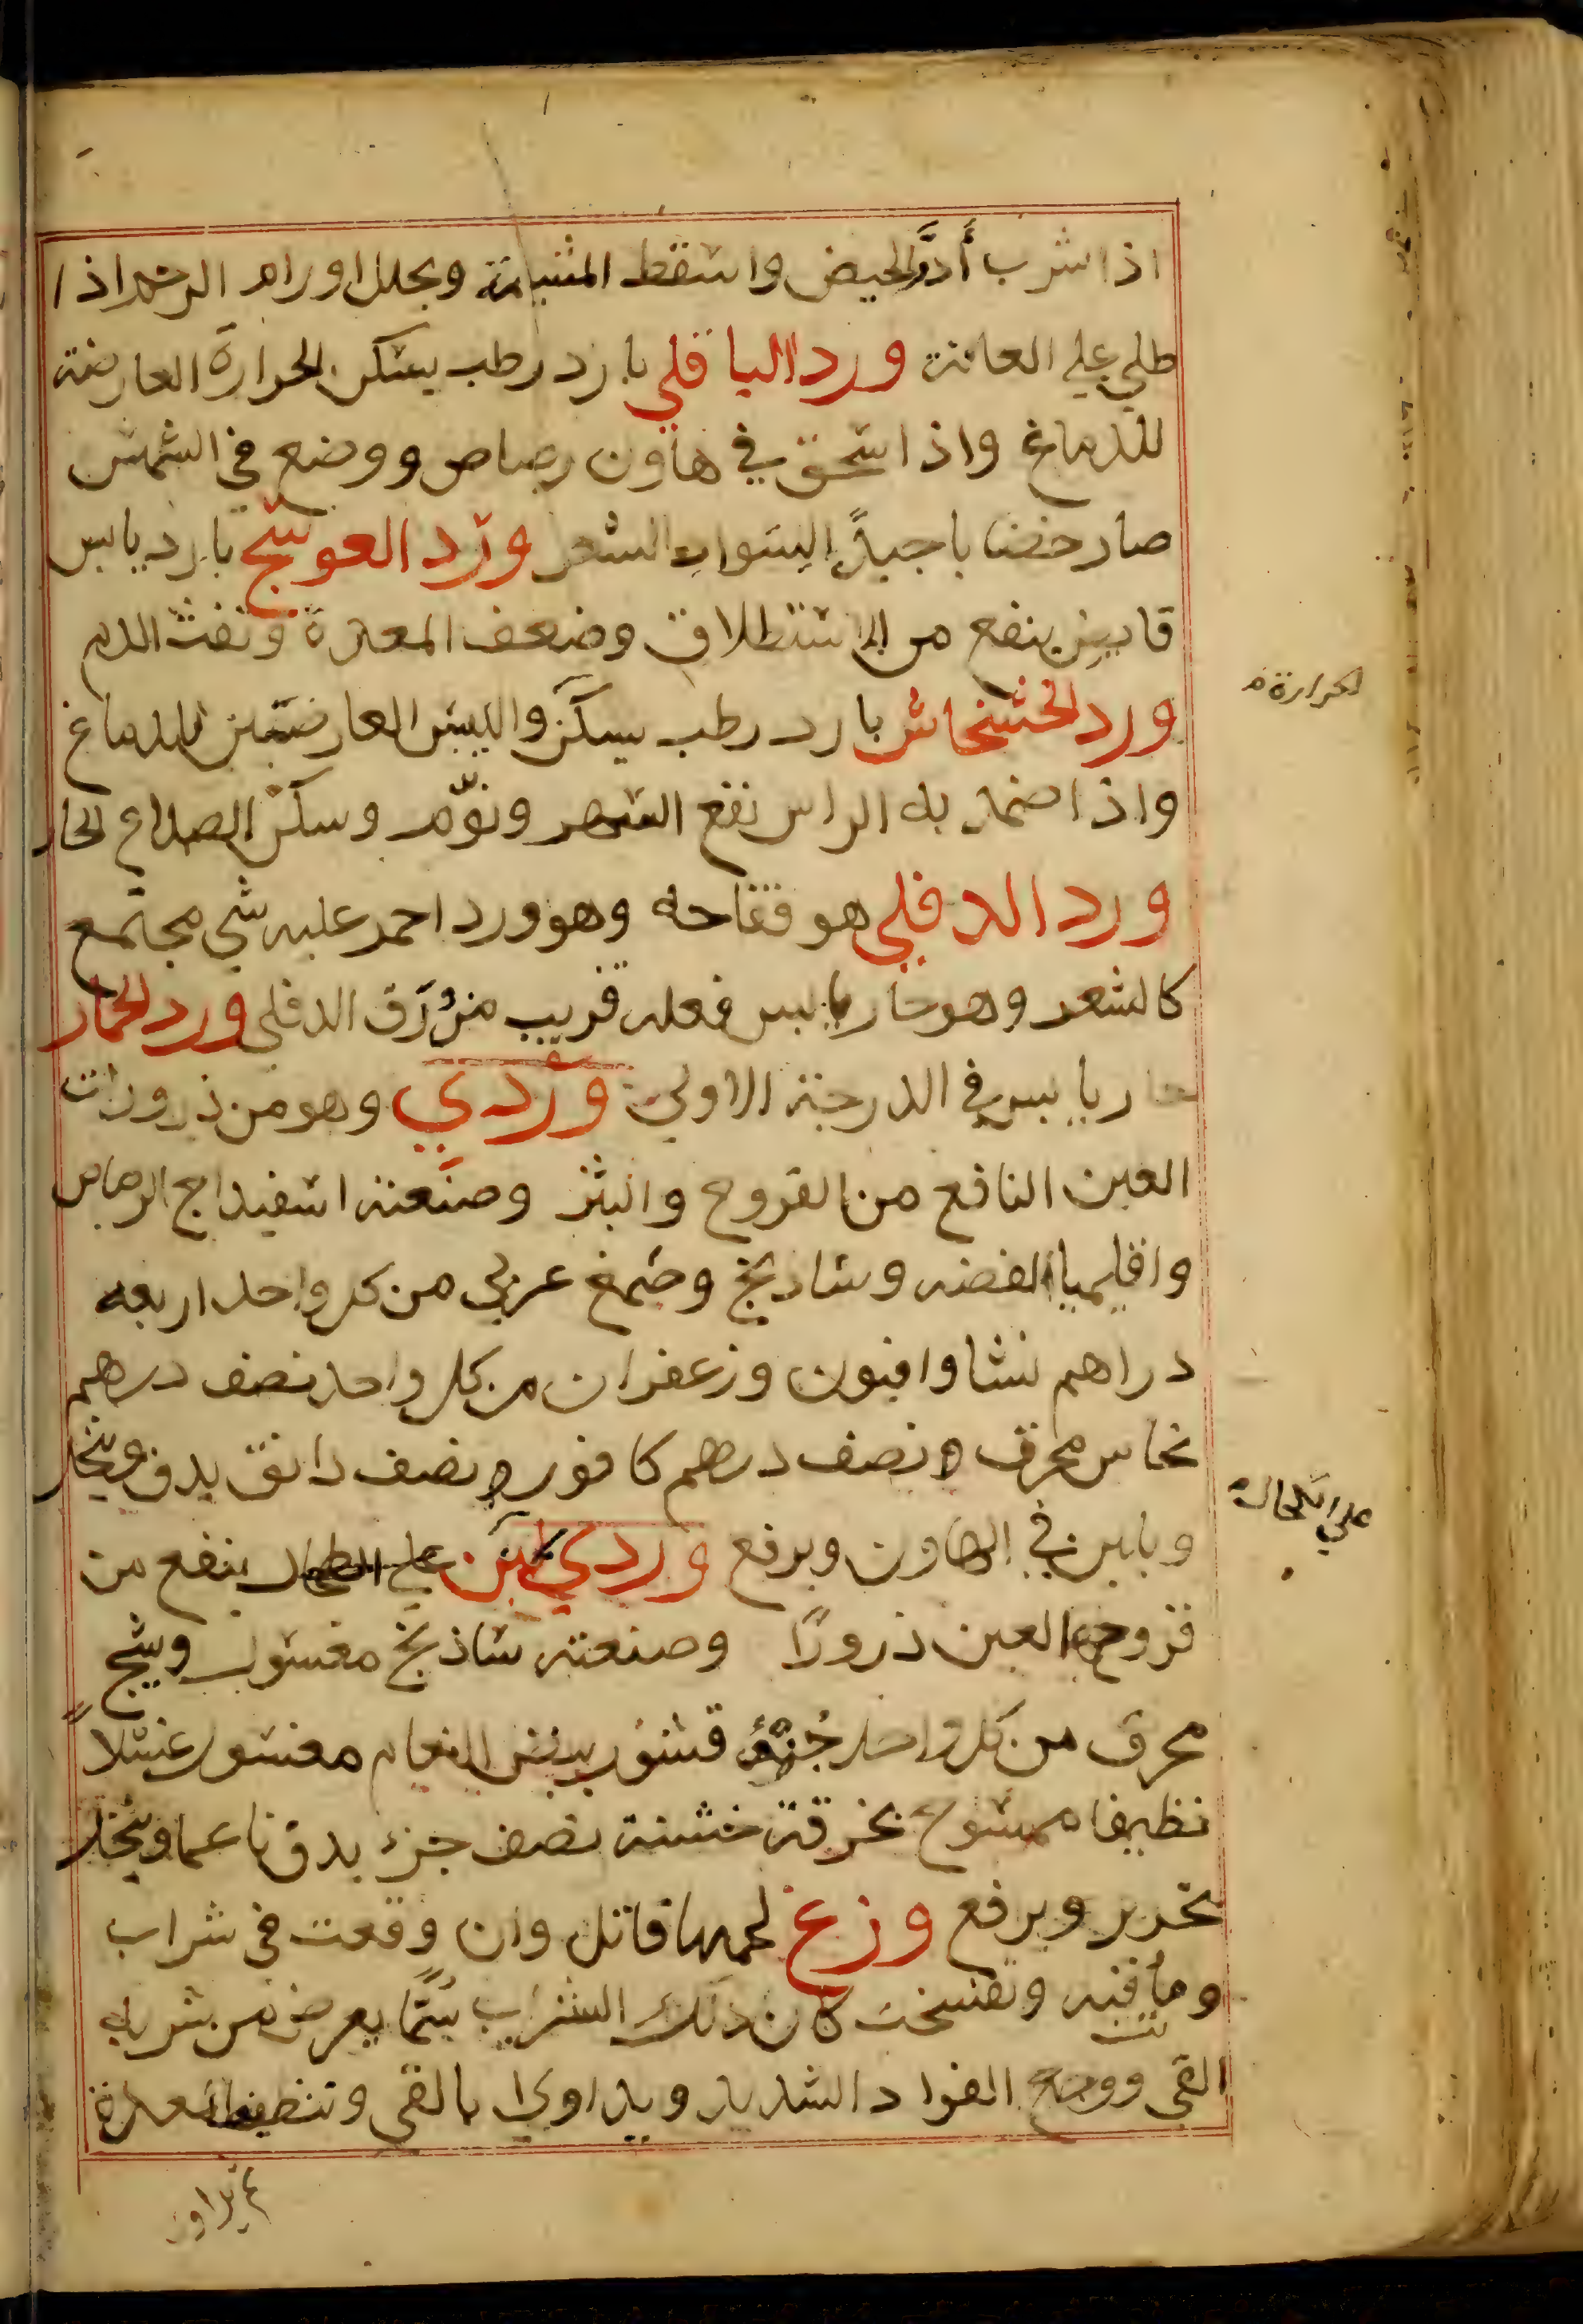 اذا شرب أدرَّ الحيض واسقط المشيمة ويحلل اورام الرحم اذا
طلي علي العانة ورد الباقلي بارد رطب يسكن الحرارة العارضة
للدماغ واذا سحق في هاون رصاص ووضع في الشمس
صار خضابا جيدًا لسواد الشعر ورد العوسج بارد يابس
قابض ينفع من الاستطلاق وضعف المعدة ونفث الدم
ورد الخشخاش بارد رطب يسكن واليبس العارضتين للدماغ
الحرارة
واذا ضمد به الراس نفع السهر ونوّم وسكن الصداع الحار
ورد الدفلي هو فقاحه وهو ورد احمر عليه شي مجتمع
كالشعر وهو حار يابس فعله قريب من ورق الدفلي ورد الحمار
حار يابس في الدرجة الاولي وردي وهو من ذرورات
العين النافع من القروح والبثر وصنعته اسفيداج الرصاص
واقليميا الفضه وشاذنج وصمغ عربي من كل واحد اربعه
دراهم نشا وافيون وزعفران من كل واحد نصف درهم
نحاس محرق نصف درهم كافور نصف دانق يدق وينخل
علي الكحال
ويابس في الهاون ويرفع وردي ينفع من
قروح العين ذرورًا وصنعته شاذنج مغسول وشيح
محرق من كل واحد جُزؤ قشور بيض النعام مغسول غسلاً
نظيفا ممسوح بخرقة خشنة نصف جزء يدق ناعما وينخل
بحرير ويرفع وزغ لحمها قاتل وان وقعت في شراب
وماتت فيه وتفسخت كان ذلك الشراب سمًّا يعرض من شربه
القي ووجع الفواد الشديد ويداوي بالقي وتنظيف المعدة